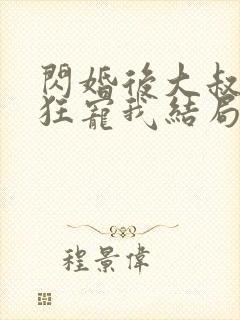 閃婚後大叔
狂寵我結局
程景偉